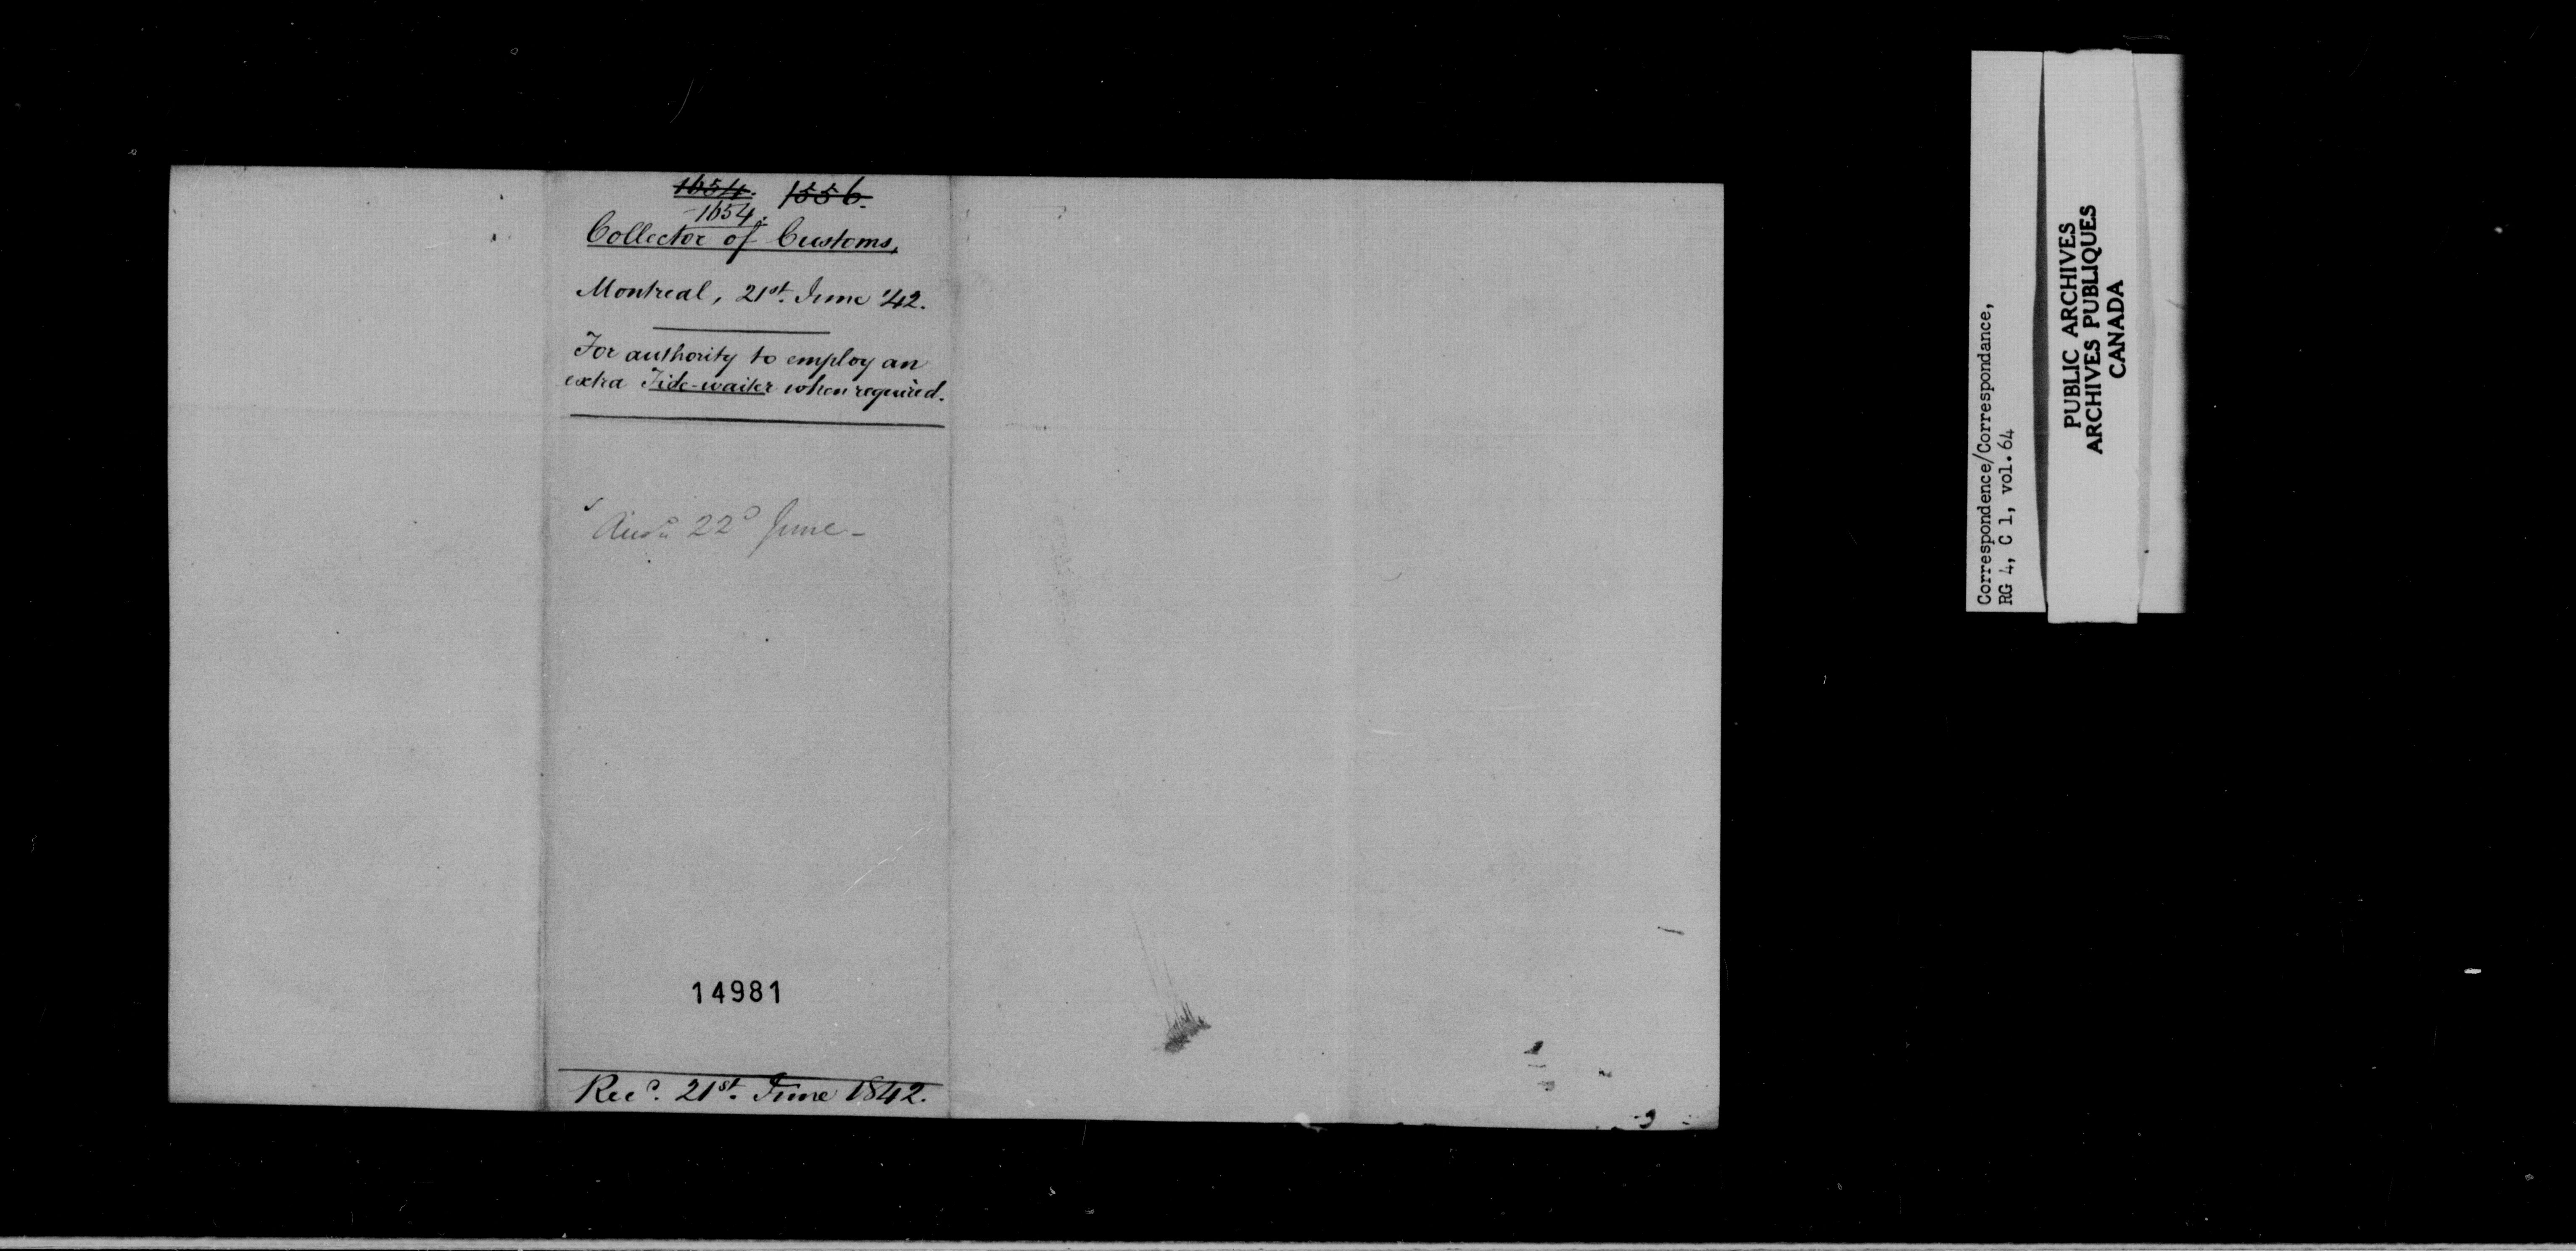 1654. 1556.
1654.
Collector of Customs,
Montreal, 21st. June '42.
For authority to employ an
extra Tide-waiter when required.
22d June -
14981
Recd. 21st. June 1842.
Correspondence/Correspondance,
RG 4, C 1, vol. 64
PUBLIC ARCHIVES
ARCHIVES PUBLIQUES
CANADA